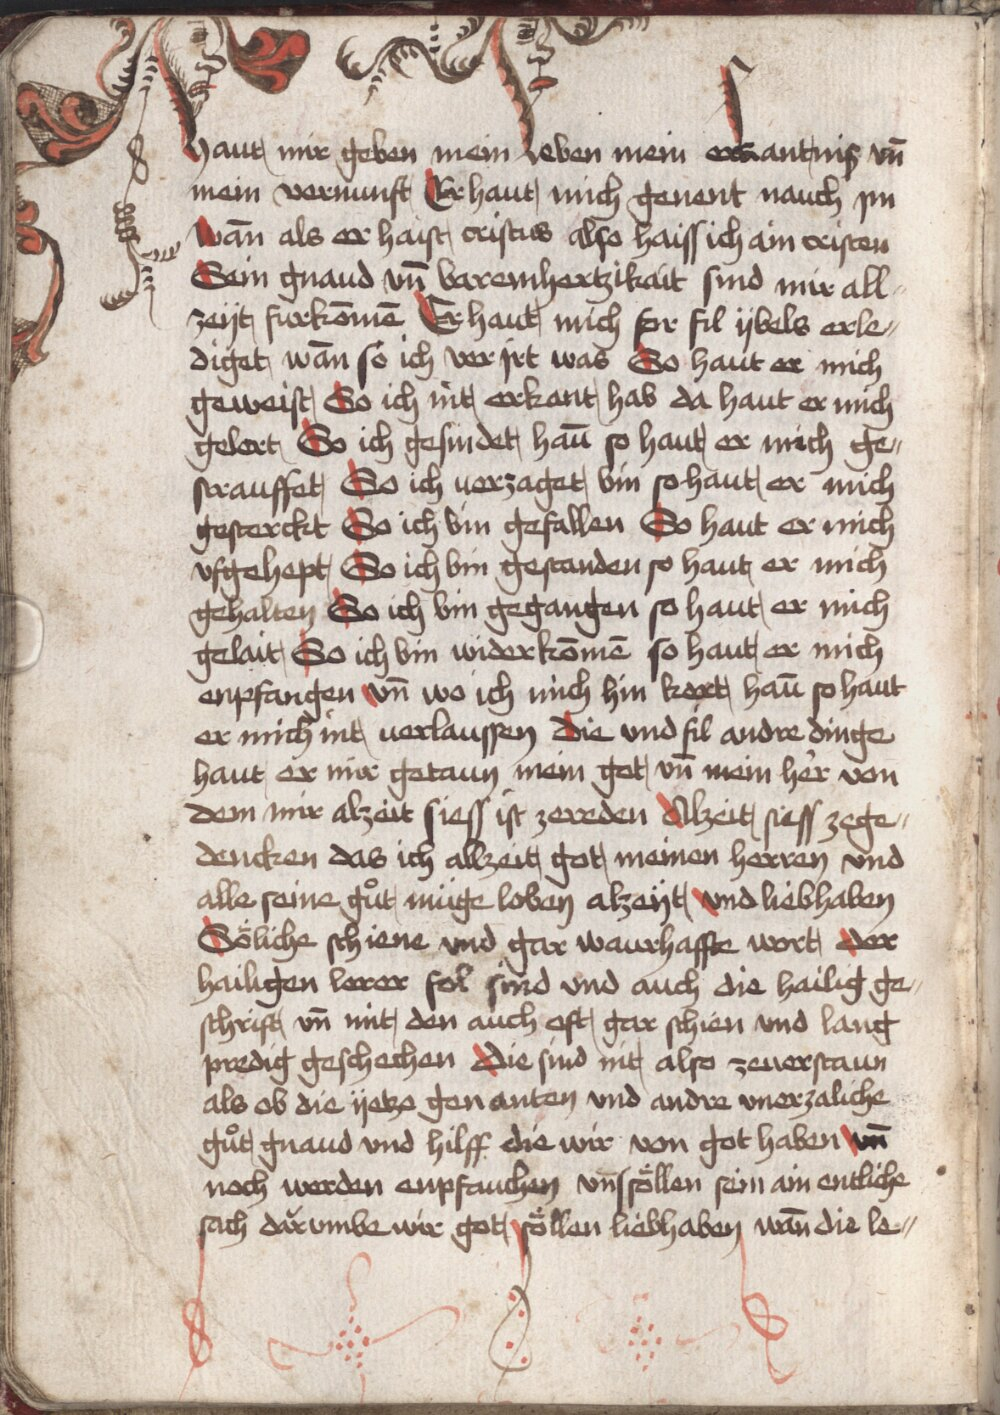 Haut mir geben mein leben mein erkantniß vn̄
mein vernunft Er haut mich genent nauch im
wān als er haist cristus also haiss ich ain cristen
Sein gnaud vn̄ baremhertzikait sind mir all-
zeÿt furkōmē Er haut mich for fil ÿbels erle-
diget wān so ich ver jrt was So haut er mich
geweist So ich nit erkant hab da haut er mich
gelert So ich gesindet haū so haut er mich ge-
strauffet So ich uerzaget bin so haut er mich
gesterckt So ich bin gefallen So haut er mich
vfgehept So ich bin gestanden so haut er mich
gehalten So ich bin gegangen so haut er mich
gelait So ich bin widerkōmē so haut er mich
enpfangen vn̄ wo ich mich hin kert haū so haut
er mich nit uerlaussen Die vnd fil andre dinge
haut er mir getaun mein got vn̄ mein her von
dem mir alzeit siess ist zereden Alzeit siess zege-
dencken das ich allzeit got meinen herren vnd
alle seine gůt müge loben alzeÿt vnd liebhaben
Söliche schiene vnd gar waurhaffte wort der
hailigen lerer fol sind vnd auch die hailig ge-
schrift vn̄ mit den auch oft gar schien vnd lang
predig geschechen Die sind nit also zeuerstaun
als ob die ÿetze genanten vnd andre vnerzaliche
gůt gnaud vnd hilff die wir von got haben vn̄
noch werden enpfauchen vns söllen sein ain entliche
sach darumbe wir got söllen liebhaben wān die le-